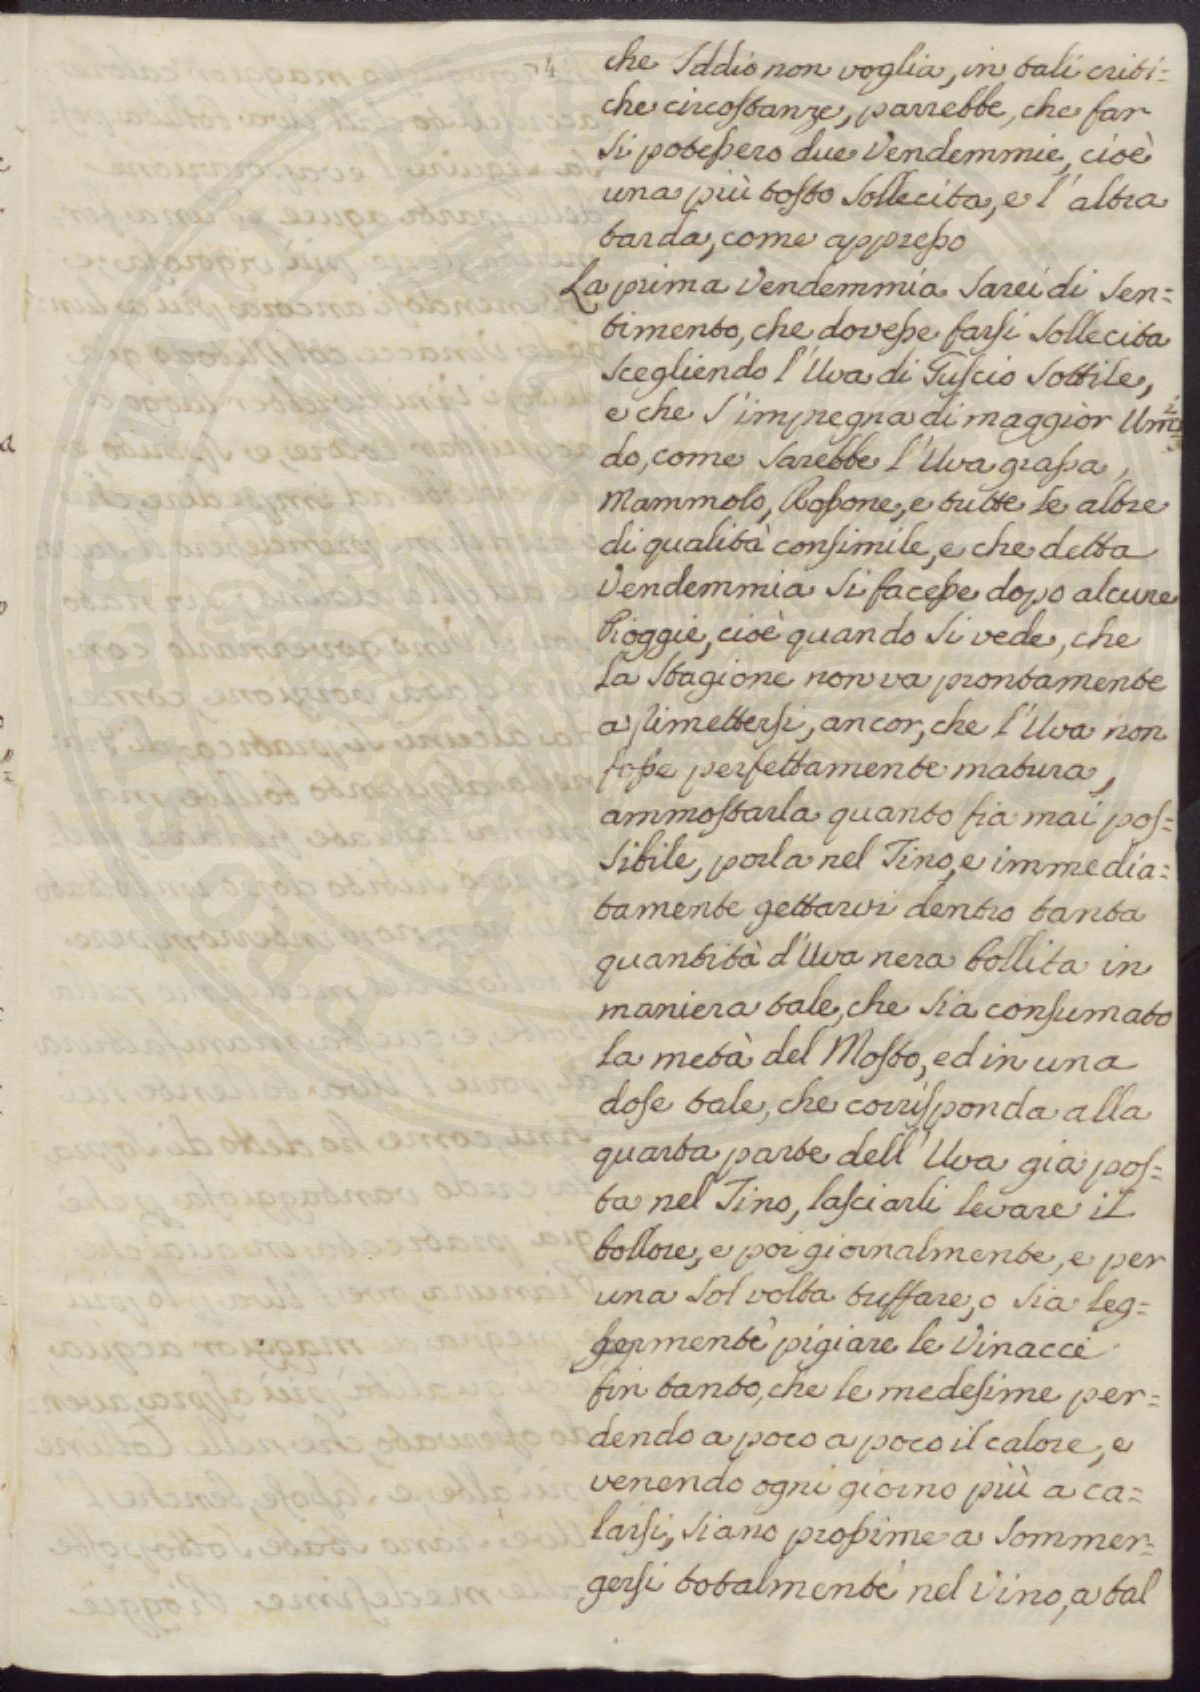 74
che Iddio non voglia, in tali criti=
che circostanze, parrebbe, che far
si potessero due Vendemmie, cioè
una più tosto sollecita, e l'altra
tarda, come appresso
La prima Vendemmia sarei di sen=
timento, che dovesse farsi sollecita
scegliendo l'Uva di Guscio sottile,
e che s'impregna di maggior Umi=
do, come sarebbe l'Uva grassa,
Mammolo, Rossone, e tutte le altre
di qualità consimile, e che detta
Vendemmia si facesse dopo alcune
Pioggie, cioè quando si vede, che
la Stagione non va prontamente
a rimettersi, ancor, che l'Uva non
fosse perfettamente matura,
ammostarla quanto sia mai pos=
sibile, porla nel Tino, e immedia=
tamente gettarvi dentro tanta
quantità d'Uva nera bollita in
maniera tale, che sia consumato
la metà del Mosto, ed in una
dose tale, che corrisponda alla
quarta parte dell'Uva gia pos=
ta nel Tino, lasciarli levare il
bollore, e poi giornalmente, e per
una sol volta tuffare, o sia leg=
germente pigiare le Vinacce
fin tanto, che le medesime per=
dendo a poco a poco il calore, e
venendo ogni giorno più a ca=
larsi, siano prossime a sommer=
gersi totalmente nel Vino, a tal